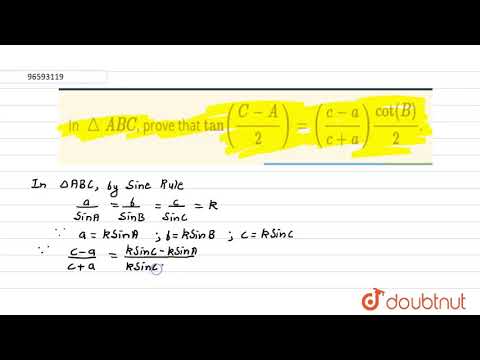 96593119
In △ ABC, prove that tan((C − A)/2) = ((c − a)/(c + a)) cot(B)/2.
In △ABC, by Sine Rule
a/SinA = b/SinB = c/SinC = K
∵ a = KSinA ; b = KSinB ; c = KSinC
∵ (c−a)/(c+a) = (KSinC − KSinA)/(KSinC
doubtnut